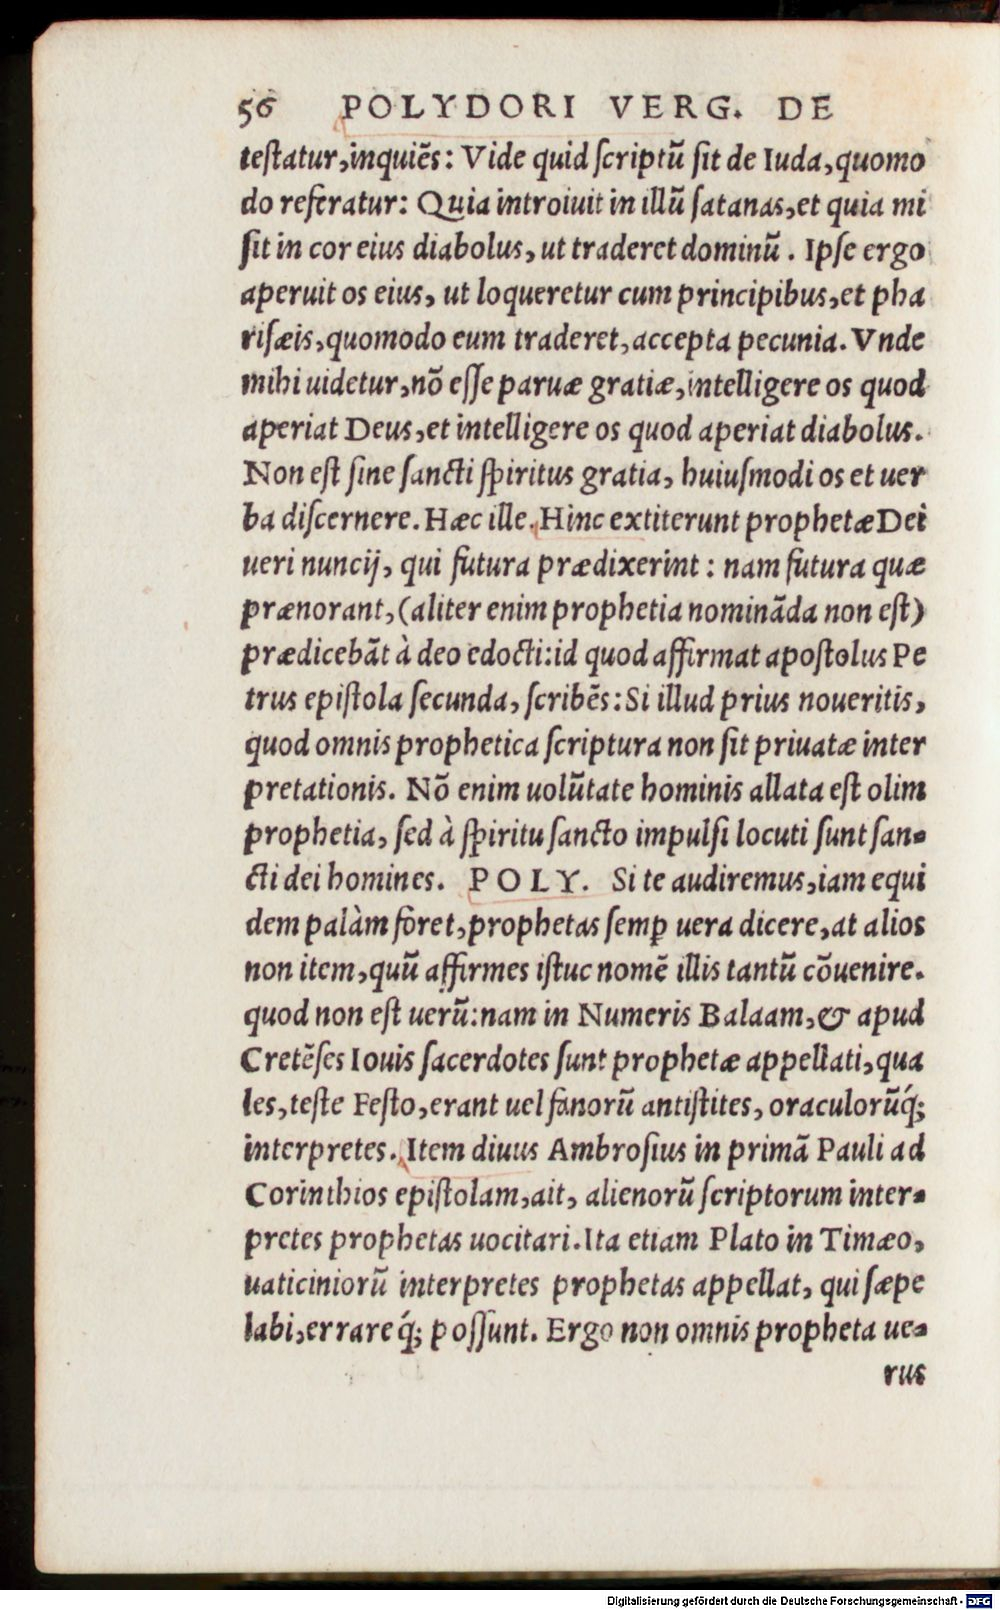 56 POLYDORI VERG. DE
teſtatur,inquiēs: Vide quid ſcriptū ſit de Iuda,quomo
do referatur: Quia introiuit in illū ſatanas,et quia mi
ſit in cor eius diabolus, ut traderet dominū. Ipſe ergo
aperuit os eius, ut loqueretur cum principibus,et pha
riſæis,quomodo eum traderet,accepta pecunia. Vnde
mihi uidetur,nō eſſe paruæ gratiæ,intelligere os quod
aperiat Deus,et intelligere os quod aperiat diabolus.
Non eſt ſine ſancti ſpiritus gratia, huiuſmodi os et uer
ba diſcernere. Hæc ille. Hinc extiterunt prophetæ Dei
ueri nuncij, qui futura prædixerint: nam futura quæ
prænorant,(aliter enim prophetia nominãda non eſt)
prædicebãt à deo edocti:id quod affirmat apoſtolus Pe
trus epiſtola ſecunda, ſcribēs: Si illud prius noueritis,
quod omnis prophetica ſcriptura non ſit priuatæ inter
pretationis. Nō enim uolūtate hominis allata eſt olim
prophetia, ſed à ſpiritu ſancto impulſi locuti ſunt ſan-
cti dei homines. POLY. Si te audiremus,iam equi
dem palàm foret,prophetas ſemꝑ uera dicere,at alios
non item,quū affirmes iſtuc nomē illis tantū cōuenire.
quod non eſt uerū:nam in Numeris Balaam,& apud
Cretēſes Iouis ſacerdotes ſunt prophetæ appellati,qua
les,teſte Feſto,erant uel fanorū antiſtites, oraculorūq́;
interpretes. Item diuus Ambroſius in primã Pauli ad
Corinthios epiſtolam,ait, alienorū ſcriptorum inter-
pretes prophetas uocitari. Ita etiam Plato in Timæo,
uaticiniorū interpretes prophetas appellat, qui ſæpe
labi,errareq́; poſſunt. Ergo non omnis propheta ue-
rus
Digitalisierung gefördert durch die Deutsche Forschungsgemeinschaft - DFG